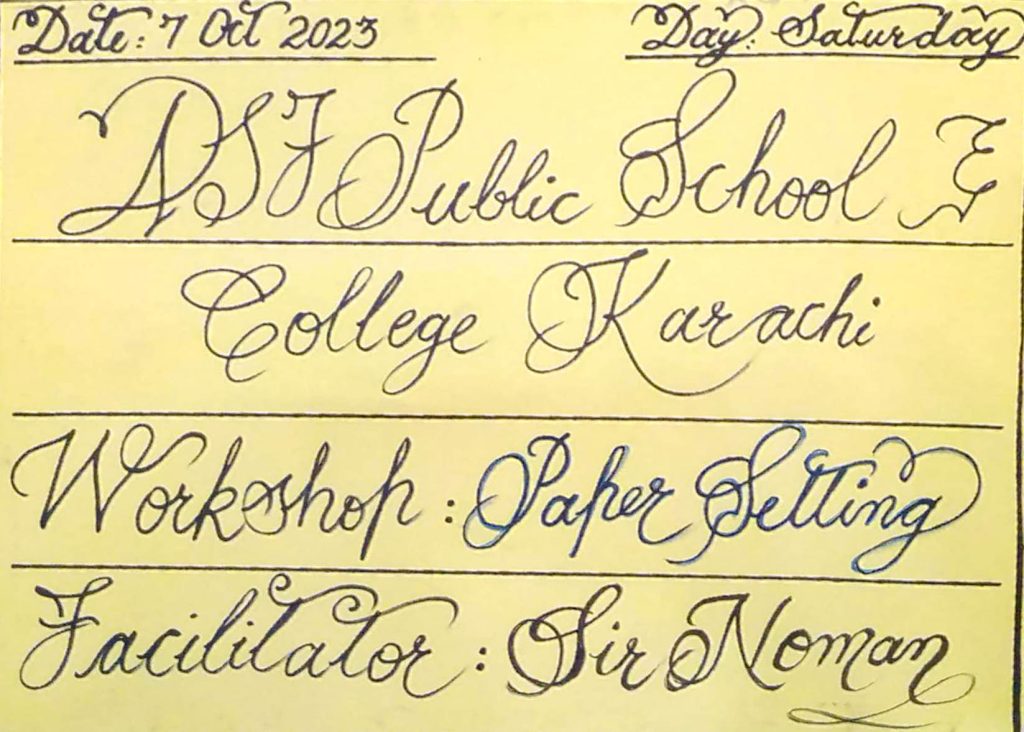 Date: 7 Oct 2023 Day: Saturday
ASF Public School &
College Karachi
Workshop : Paper Setting
Facilitator : Sir Noman